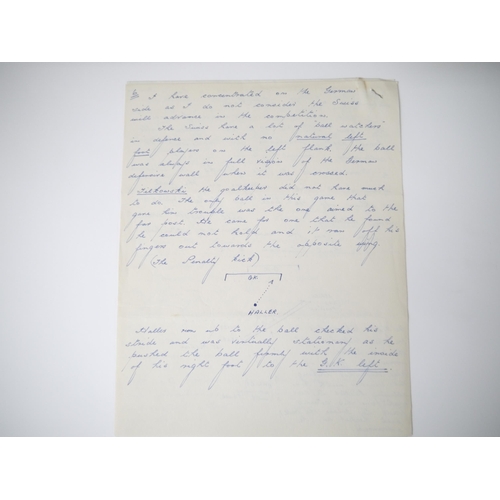 I have concentrated on the German
side as I do not consider the Swiss
will advance in the competition.
The Swiss have a lot of "ball watchers"
in defence and with no natural left
foot players on the left flank, the ball
was always in full vision of the German
defensive wall when it was crossed.
Tilkowski the goalkeeper did not have much
to do. The only ball in this game that
gave him trouble was the one aimed to the
far post. He came for one that he found
he could not help and it ran off his
fingers out towards the opposite wing.
(The Penalty Kick)
GK
HALLER
Haller ran up to the ball checked his
stride and was virtually stationary as he
pushed the ball firmly with the inside
of his right foot to the G.K. left.